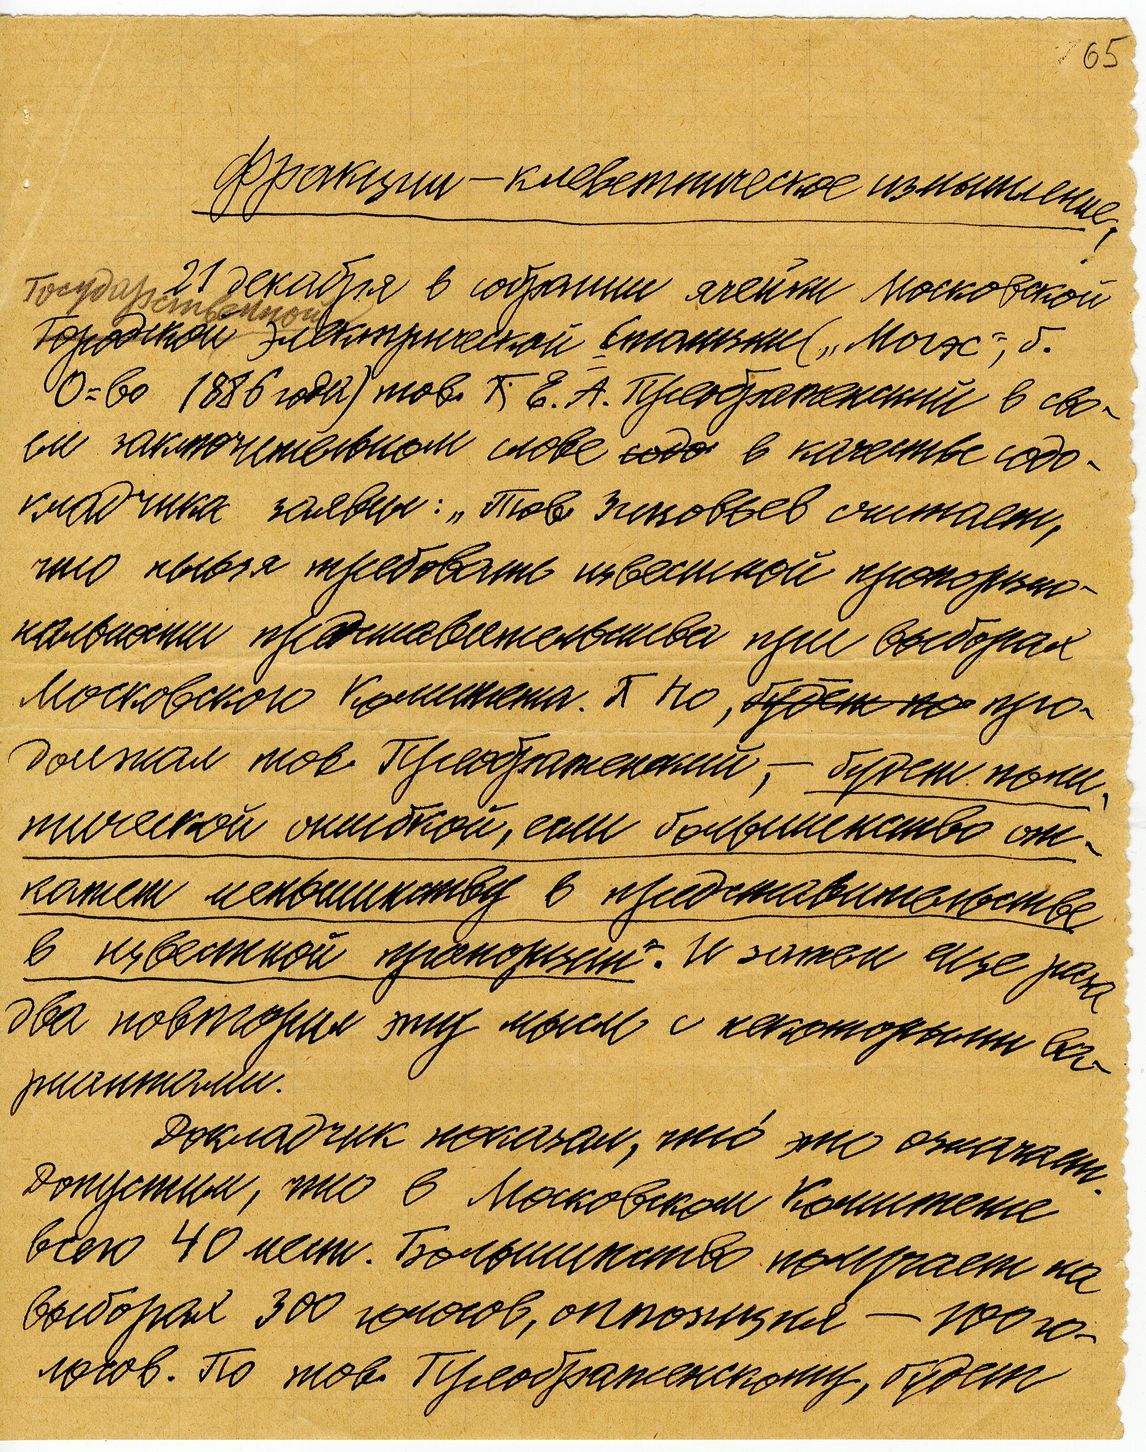 65
Фракции — клеветническое измышление,
21 декабря в собрании ячейки Московской
Государственной
Городской Электрической Станции („Могэс“, б.
О-во 1886 года) тов. Е. А. Преображенский в сво-
ем заключительном слове содо в качестве содо-
кладчика заявил: „Тов Зиновьев считает,
что нельзя требовать известной пропорцио-
нальности представительства при выборах
Московского Комитета. Но, будет по про-
должал тов. Преображенский, — будет поли-
тической ошибкой, если большинство от-
кажет меньшинству в представительстве
в известной пропорции“. И затем еще раза
два повторил эту мысль с некоторыми ва-
риантами.
Докладчик показал, что́ это означает.
Допустим, что в Московском Комитете
всего 40 мест. Большинство получает на
выборах 300 голосов, оппозиция — 100 го-
лосов. По тов. Преображенскому, будет